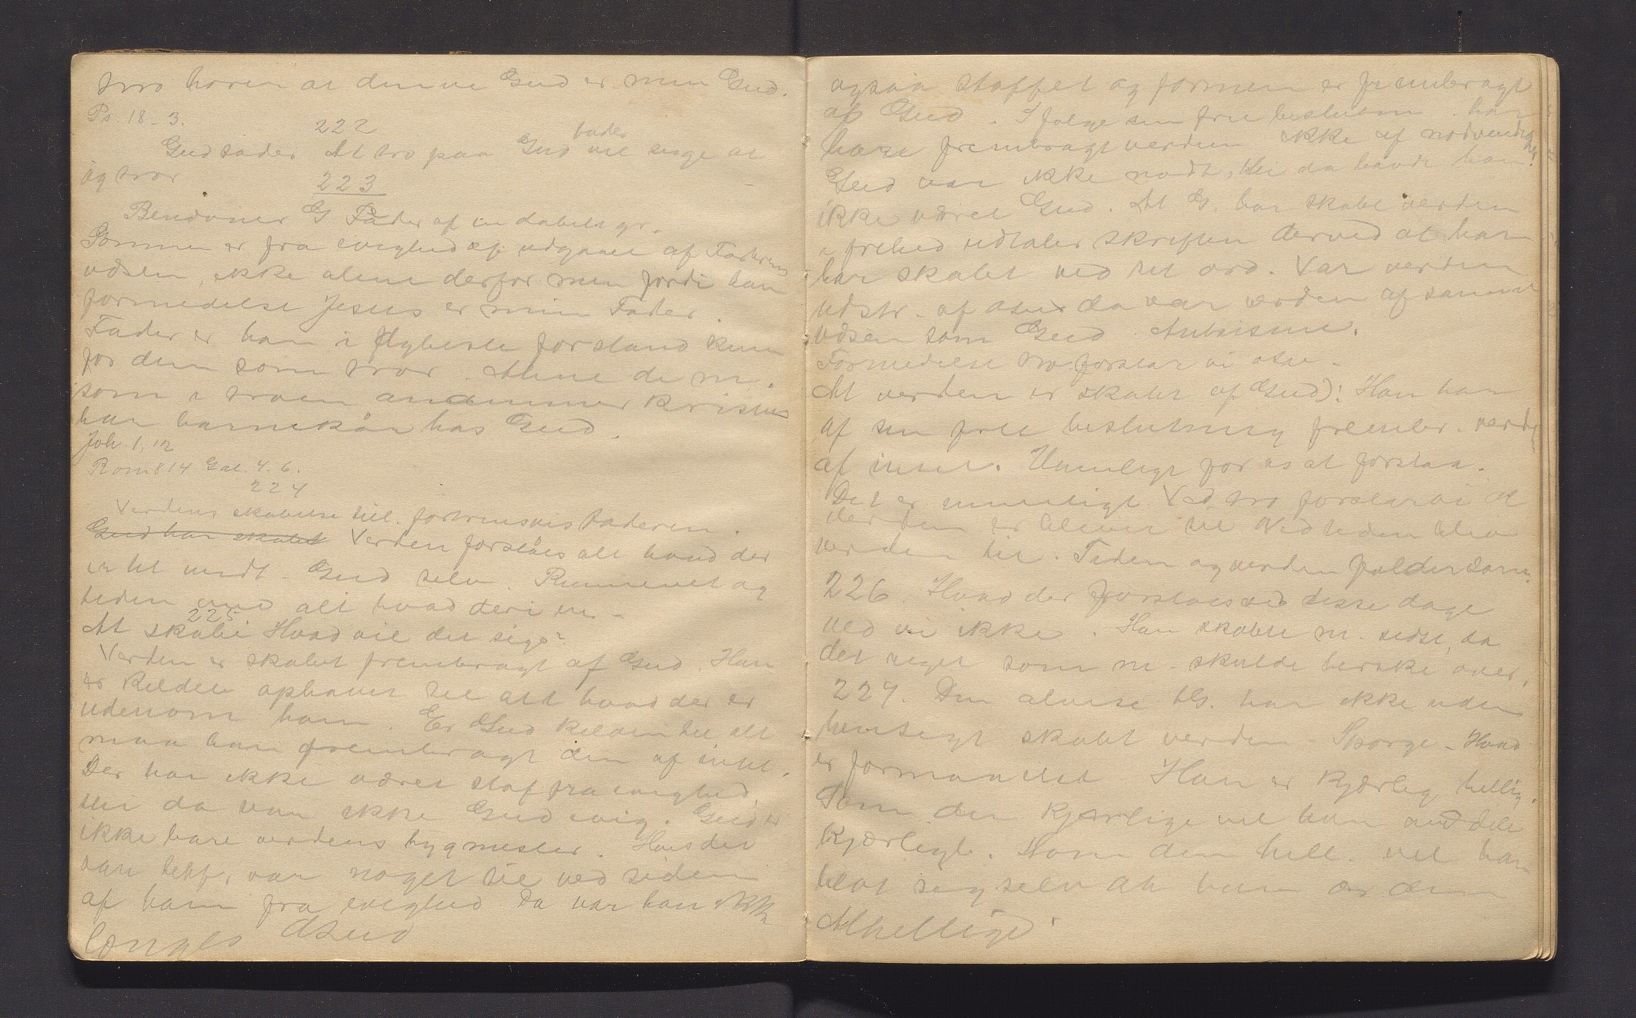 tro hører at denne Gud er min Gud.
Ps. 18-3.
222
Gud fader At tro paa Gud fader vil sige at
jeg tror
223
Benævner G Fader af en dobbelt gr.
Sønnen er fra evighed af udgaaet af Faderens
væsen, ikke alene derfor men fordi han
formedelst Jesus er min Fader.
Fader er han i dybeste forstand kun
for dem som tror. Alene de m.
som i troen anammer Kristus
har barnekår hos Gud.
Joh. 1, 12
Rom 8 14 Gal. 4. 6.
224
Verdens skabelse till. fortrinsvis Faderen.
Gud har skabt Verden forståes alt hvad der
er til undt. Gud selv. Rummet og
tiden med alt hvad deri er.
225
At skabe Hvad vil det sige?
Verden er skabt frembragt af Gud. Han
er kilden ophavet til alt hvad der er
udenom ham. Er Gud kilden til alt
maa han frembragt den af intet.
Der har ikke været stof fra evighed,
thi da var ikke Gud evig. Gud er
ikke bare verdens bygmester. Hvis der
var noget til ved siden
af ham fra evighed da var han ikke
længes Gud
ogsaa stoffet og formen er frembragt
af Gud. Ifølge sin frie beslutn. har
han frembragt verden ikke af nødvendighed.
Gud var ikke nødt, thi da havde han
ikke været Gud. At G. har skabt verden
i frihed udtaler skriften derved at han
har skabt ved sit ord. Var verden
udstr. af da var verden af samme
væsen som Gud.
Formedelst tro forstår vi
At verden er skabt af Gud): Han har
af sin frie beslutning frembr. verden
af intet. Umuligt for os at forstaa.
Det er umuligt. Ved tro forstår vi at
verden er bleven til Ved tiden blev
verden til. Tiden og verden falder sam.
226 Hvad der forståes ved disse dage
ved vi ikke. Han skabte m. sidst, da
det var som m. skulde herske over.
227. Den alvise G. har ikke uden
hensigt skabt verden. Spørge. Hvad
er formaalet Han er kjærlig hellig.
Som den kjærlige vil han meddele
kjærligh. Som den hell. vil han
blot sig selv at han er den
Alhellige.